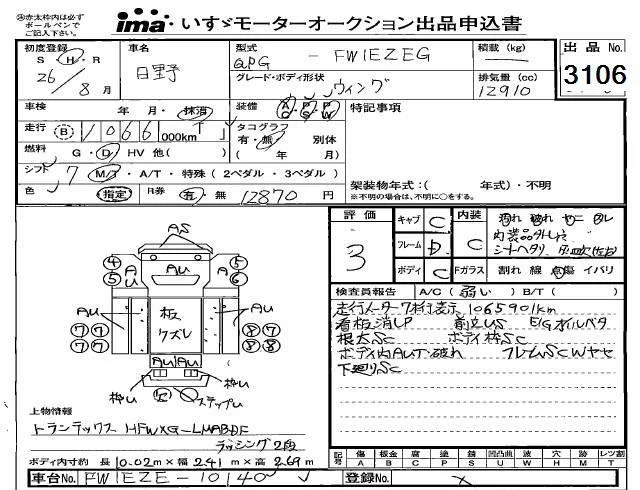 ※赤太枠内は必ず
ボールペンで
ご記入下さい。
ima いすゞモーターオークション出品申込書
初度登録 車名 型式 積載 (kg) 出品No.
S・H・R 日野 QPG - FW1EZEG 3106
26/8月 グレード・ボディ形状 ウィング 排気量(cc) 12910
車検 年 月・抹消 装備 AC PS PW 特記事項
走行 (B) 1066 000km タコグラフ 有・無 別体
( 年 月)
燃料 G・D・HV 他( )
シフト 7 M/T・A/T・特殊(2ペダル・3ペダル)
架装物年式:( 年式)・不明
※不明の場合は、不明に○をする。
色 指定 R券 有・無 12870円
評価 3 キャブ C 内装 C
フレーム D
ボディ C Fガラス 割れ 線 点傷 イバリ
内装品外し
シートヘタリ
検査員報告 A/C(弱い) B/T( )
走行メーター7桁表示 1065901km
看板消しP E/Gオイルベタ
根太SC ボディ枠SC
ボディ内AUT・破れ フレームSCWヤセ
下廻りSC
AS
④ A U AU A U ⑤
④ ⑥
AU 板 クズレ AU
⑦⑦ ⑧⑧
⑦⑦ ⑧⑧
AU AU
枠U 枠U
ステップU
上物情報
トランテックス HFWXG-LMABDF
ラッシング2段
ボディ内寸約 長 10.02m×幅 2.41m×高 2.69m
記号 傷A 板金B 腐食C 塗P 錆S 凹凸曲U 波W 穴H 跡M レツ割T
車台No. FW1EZE-10140 登録No.